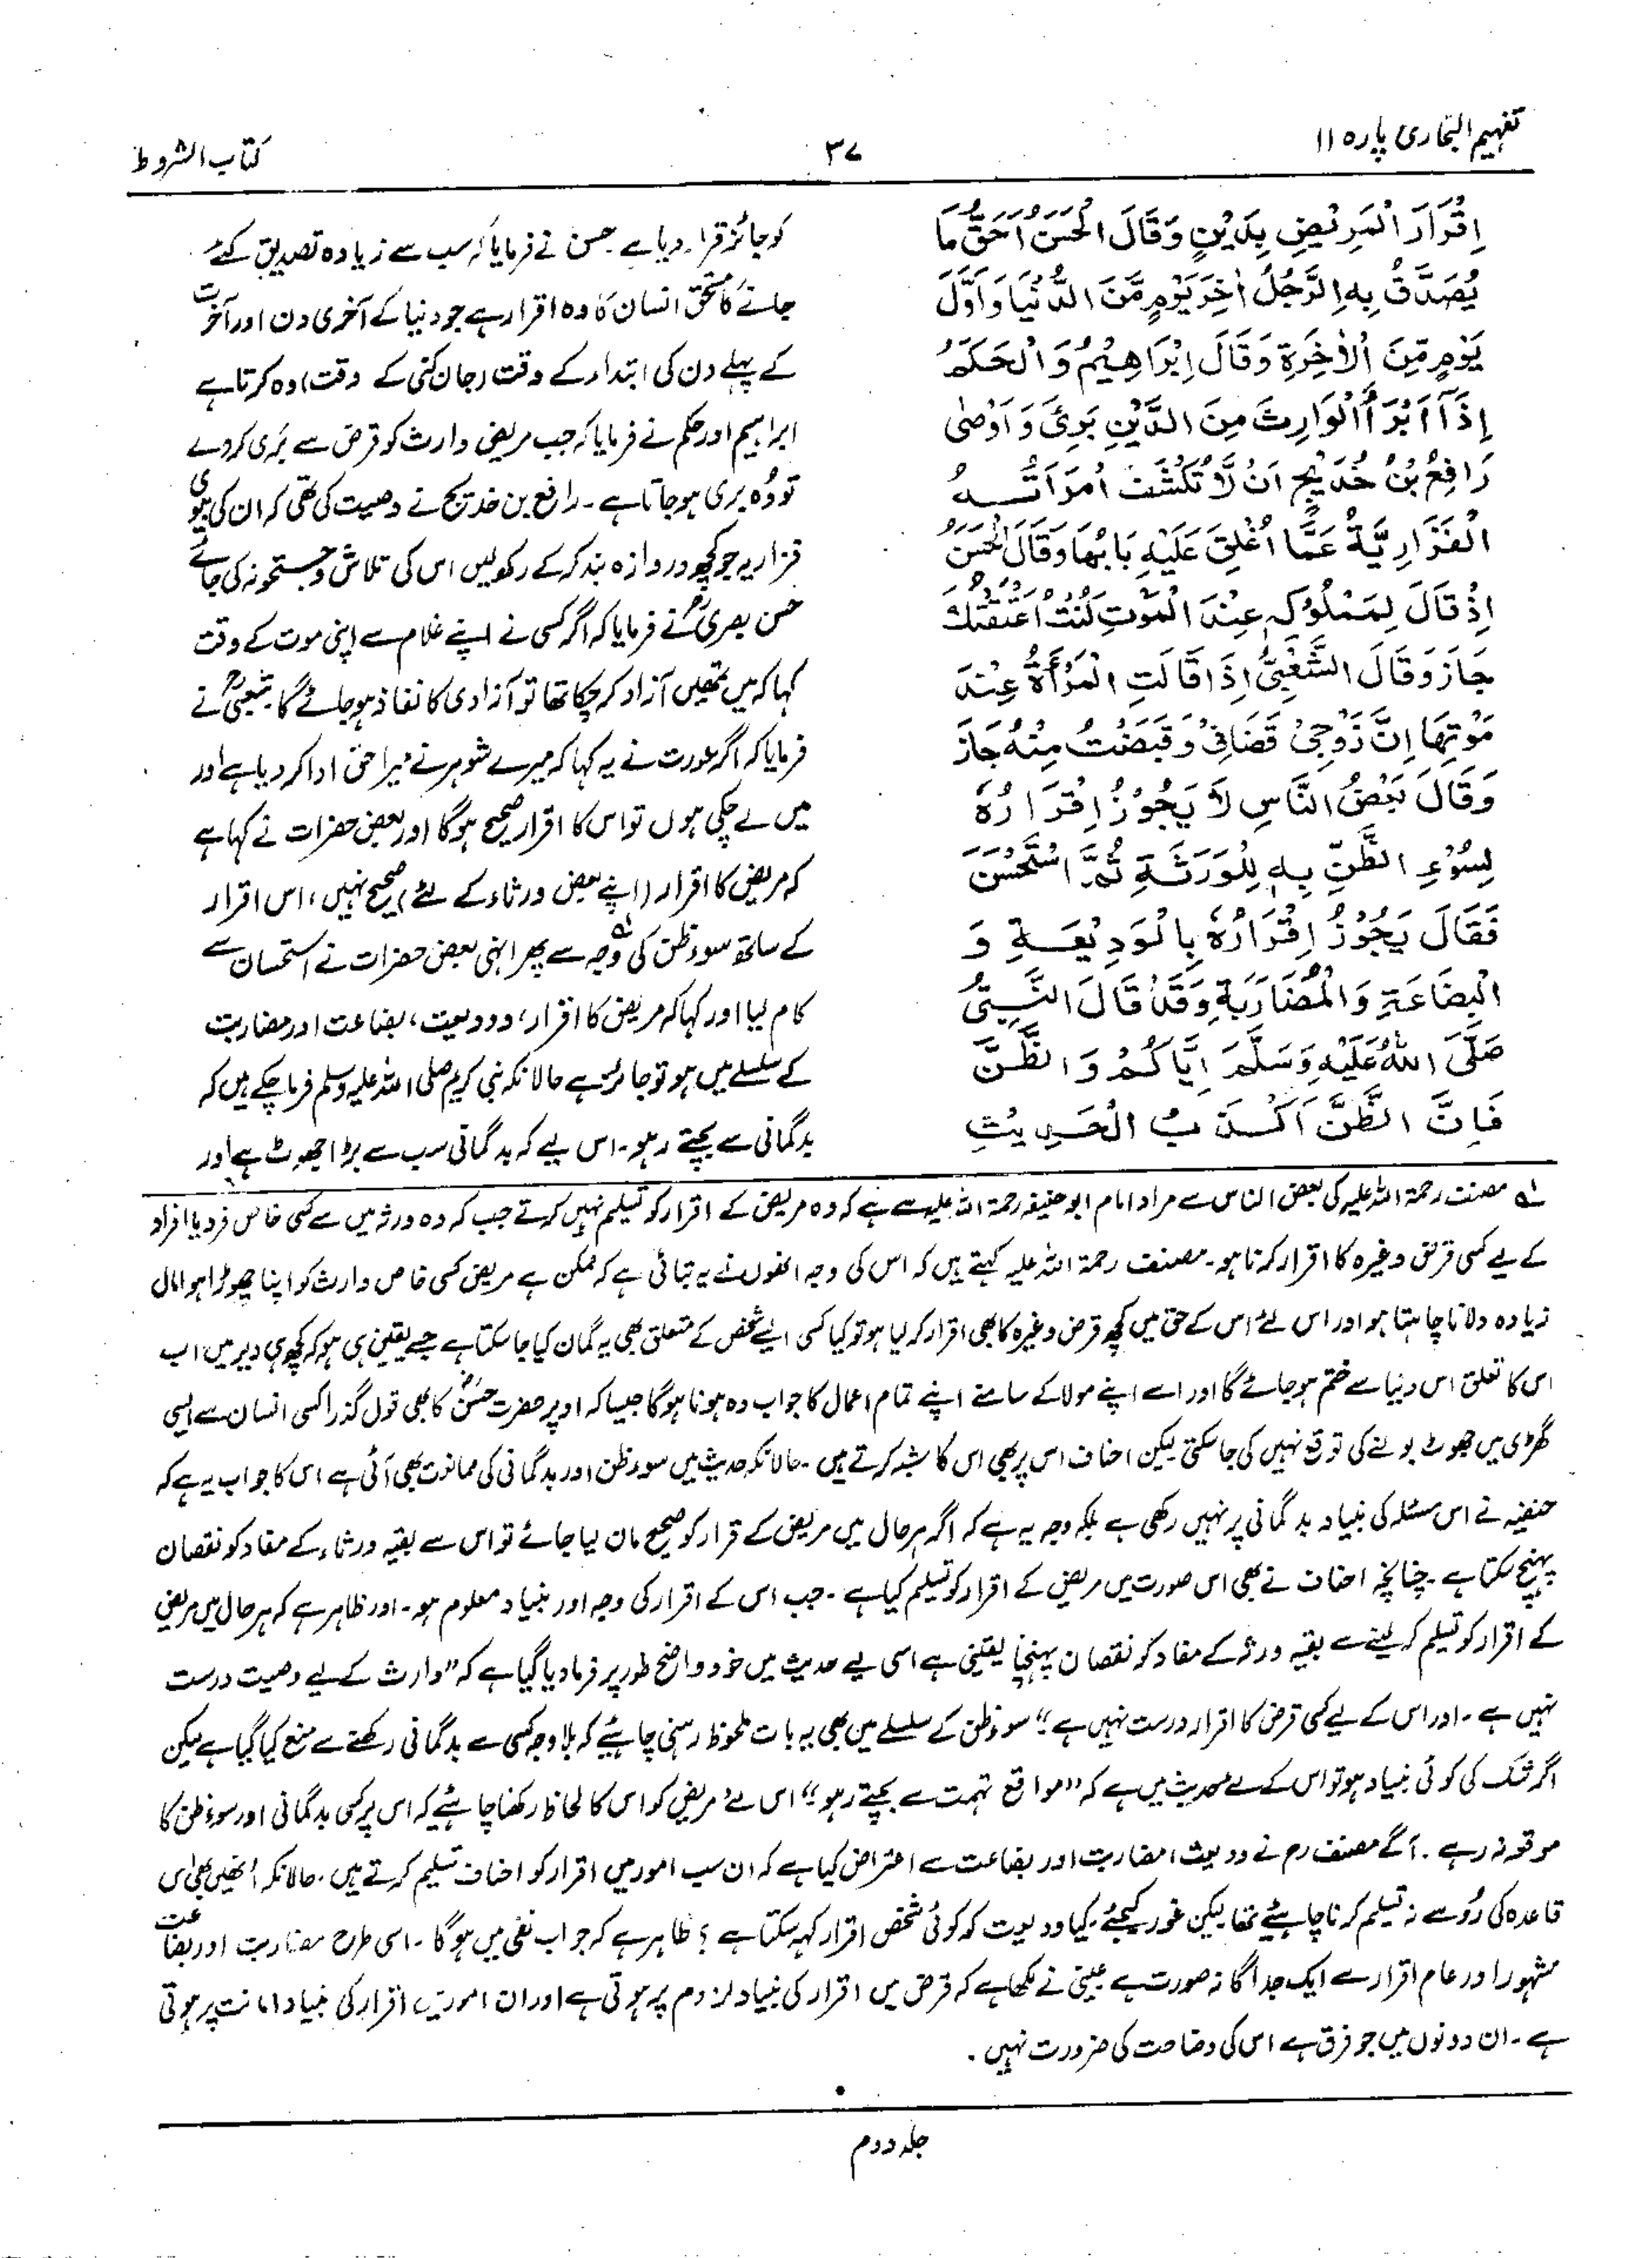 تفہیم البخاری پارہ ۱۱
۳۷
کتاب الشروط
اِقْرَارَ الْمَرِيْضِ بِدَيْنٍ وَقَالَ الْحَسَنُ اَحَقُّ مَا
يُصَدَّقُ بِهِ الرَّجُلُ اٰخِرَ يَوْمٍ مِّنَ الدُّنْيَا وَاَوَّلَ
يَوْمٍ مِّنَ الْاٰخِرَةِ وَقَالَ اِبْرَاهِيْمُ وَالْحَكَمُ
اِذَآ اَبْرَأَ الْوَارِثَ مِنَ الدَّيْنِ بَرِئَ وَاَوْصٰى
رَافِعُ بْنُ خَدِيْجٍ اَنْ لَّا تُكْشَفَ امْرَاَتُهُ
الْفَزَارِيَّةُ عَمَّا اُغْلِقَ عَلَيْهِ بَابُهَا وَقَالَ الْحَسَنُ
اِذْ قَالَ لِمَمْلُوْكِهٖ عِنْدَ الْمَوْتِ كُنْتُ اَعْتَقْتُكَ
جَازَ وَقَالَ الشَّعْبِيُّ اِذَا قَالَتِ الْمَرْأَةُ عِنْدَ
مَوْتِهَا اِنَّ زَوْجِيْ قَضَانِيْ وَقَبَضْتُ مِنْهُ جَازَ
وَقَالَ بَعْضُ النَّاسِ لَا يَجُوْزُ اِقْرَارُهٗ
لِسُوْءِ الظَّنِّ بِهٖ لِلْوَرَثَةِ ثُمَّ اسْتَحْسَنَ
فَقَالَ يَجُوْزُ اِقْرَارُهٗ بِالْوَدِيْعَةِ وَ
الْبِضَاعَةِ وَالْمُضَارَبَةِ وَقَدْ قَالَ النَّبِيُّ
صَلَّى اللّٰهُ عَلَيْهِ وَسَلَّمَ اِيَّاكُمْ وَالظَّنَّ
فَاِنَّ الظَّنَّ اَكْذَبُ الْحَدِيْثِ
کو جائز قرار دیا ہے۔ حسن نے فرمایا کہ سب سے زیادہ تصدیق کئے
جانے کا مستحق انسان کا وہ اقرار ہے جو دنیا کے آخری دن اور آخرت
کے پہلے دن کی ابتداء کے وقت (جان کنی کے وقت) وہ کرتا ہے
ابراہیم اور حکم نے فرمایا کہ جب مریض وارث کو قرض سے بَری کردے
تو وُہ بری ہوجاتا ہے۔ رافع بن خدیج نے وصیت کی تھی کہ ان کی بیوی
فزاریہ جو کچھ دروازہ بند کرکے رکھ لیں اس کی تلاش و جستجو نہ کی جائے
حسن بصریؒ نے فرمایا کہ اگر کسی نے اپنے غلام سے اپنی موت کے وقت
کہا کہ میں تمھیں آزاد کرچکا تھا تو آزادی کا نفاذ ہوجائے گا۔ شعبیؒ نے
فرمایا کہ اگر عورت نے یہ کہا کہ میرے شوہر نے میرا حق ادا کردیا ہے اور
میں لے چکی ہوں تو اس کا اقرار صحیح ہوگا اور بعض حضرات نے کہا ہے
کہ مریض کا اقرار (اپنے بعض ورثاء کے لئے) صحیح نہیں، اس اقرار
کے ساتھ سوءِ ظن کی وجہ سے پھر انہی بعض حضرات نے استحسان سے
کام لیا اور کہا کہ مریض کا اقرار، ودیعت، بضاعت اور مضاربت
کے سلسلے میں ہو تو جائز ہے حالانکہ نبی کریم صلی اللہ علیہ وسلم فرماچکے ہیں کہ
بدگمانی سے بچتے رہو۔ اس لیے کہ بدگمانی سب سے بڑا جھوٹ ہے اور
لہ مصنف رحمۃ اللہ علیہ کی بعض الناس سے مراد امام ابو حنیفہ رحمۃ اللہ علیہ سے ہے کہ وہ مریض کے اقرار کو تسلیم نہیں کرتے جب کہ وہ ورثہ میں سے کسی خاص فرد یا افراد
کے لیے کسی قرض وغیرہ کا اقرار کرتا ہو۔ مصنف رحمۃ اللہ علیہ کہتے ہیں کہ اس کی وجہ انھوں نے یہ بتائی ہے کہ ممکن ہے مریض کسی خاص وارث کو اپنا چھوڑا ہوا مال
زیادہ دلانا چاہتا ہو اور اس لئے اس کے حق میں کچھ قرض وغیرہ کا بھی اقرار کرلیا ہو تو کیا کسی ایسے شخص کے متعلق بھی یہ گمان کیا جاسکتا ہے جسے یقین ہی ہو کہ کچھ ہی دیر میں اب
اس کا تعلق اس دنیا سے ختم ہوجائے گا اور اسے اپنے مولا کے سامنے اپنے تمام اعمال کا جواب دہ ہونا ہوگا جیسا کہ اوپر حضرت حسنؓ کا بھی قول گذرا کسی انسان سے ایسی
گھڑی میں جھوٹ بولنے کی توقع نہیں کی جاسکتی لیکن احناف اس پر بھی اس کا شبہ کرتے ہیں۔ حالانکہ حدیث میں سوءِ ظن اور بدگمانی کی ممانعت بھی آئی ہے اس کا جواب یہ ہے کہ
حنفیہ نے اس مسئلہ کی بنیاد بدگمانی پر نہیں رکھی ہے بلکہ وجہ یہ ہے کہ اگر ہر حال میں مریض کے قرار کو صحیح مان لیا جائے تو اس سے بقیہ ورثاء کے مفاد کو نقصان
پہنچ سکتا ہے۔ چنانچہ احناف نے بھی اس صورت میں مریض کے اقرار کو تسلیم کیا ہے۔ جب اس کے اقرار کی وجہ اور بنیاد معلوم ہو۔ اور ظاہر ہے کہ ہر حال میں مریض
کے اقرار کو تسلیم کرلینے سے بقیہ ورثہ کے مفاد کو نقصان پہنچنا یقینی ہے اسی لیے حدیث میں خود واضح طور پر فرمادیا گیا ہے کہ ”وارث کے لیے وصیت درست
نہیں ہے۔ اور اس کے لیے کسی قرض کا اقرار درست نہیں ہے“ سوءِ ظن کے سلسلے میں بھی یہ بات ملحوظ رہنی چاہئیے کہ بلاوجہ کسی سے بدگمانی رکھنے سے منع کیا گیا ہے لیکن
اگر شک کی کوئی بنیاد ہو تو اس کے لئے حدیث میں ہے کہ ”مواقع تہمت سے بچتے رہو“ اس لئے مریض کو اس کا لحاظ رکھنا چاہئیے کہ اس پر کسی بدگمانی اور سوءِ ظن کا
موقعہ نہ رہے۔ آگے مصنف رح نے ودیعت، مضاربت اور بضاعت سے اعتراض کیا ہے کہ ان سب امور میں اقرار کو احناف تسلیم کرتے ہیں۔ حالانکہ اُنھیں بھی اس
قاعدہ کی رُو سے نہ تسلیم کرنا چاہئیے تھا لیکن غور کیجئے۔ کیا ودیعت کو کوئی شخص اقرار کہہ سکتا ہے؟ ظاہر ہے کہ جواب نفی میں ہوگا۔ اسی طرح مضاربت اور بضاعت
مشہور اور عام اقرار سے ایک جداگانہ صورت ہے عینی نے لکھا ہے کہ قرض میں اقرار کی بنیاد لزوم پر ہوتی ہے اور ان امور میں اقرار کی بنیاد امانت پر ہوتی
ہے۔ ان دونوں میں جو فرق ہے اس کی وضاحت کی ضرورت نہیں۔
جلد دوم